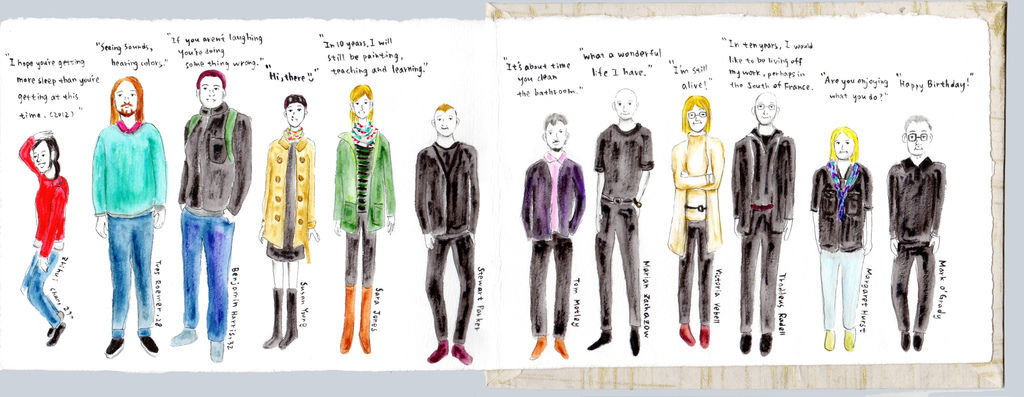 "I hope you're getting
more sleep than you're
getting at this
time. (2012)"
"Seeing sounds,
hearing colors."
"If you aren't laughing
You're doing
some thing wrong."
"Hi, there
"In 10 years, I will
still be painting,
teaching and learning."
"It's about time
you clean
the bathroom."
"what a wonderful
life I have."
"I'm still
alive!"
"In ten years, I would
like to be living off
my work, perhaps in
the South of France."
"Are you enjoying
what you do?"
"Happy Birthday!"
Tres Roemer. 28
Benjamin Harris. 32
Susan Yung
Sara Jones
Stewart Parker
Tom Motley
Marian Zachazow
Victoria Yebell
Thaddeus Radell
Margaret Hurst
Mark O'Grady